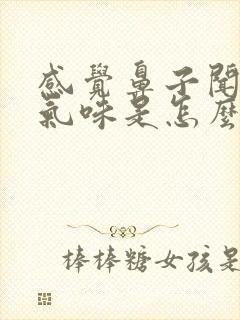 感覺鼻子聞
氣味是怎麼
棒棒糖女孩是